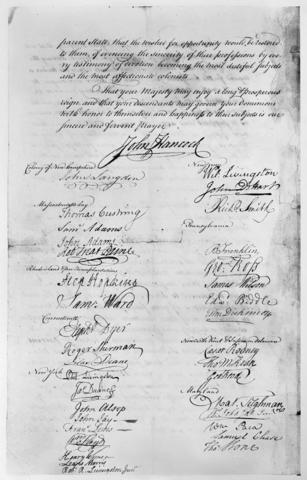 parent State, that the wished for opportunity would be restored
to them, of evincing the sincerity of their professions by eve-
ry testimony of devotion becoming the most dutiful subjects
and the most affectionate colonists.
That your Majesty may enjoy a long & prosperous
reign, and that your descendants may govern your Dominions
with honor to themselves and happiness to their subjects is our
sincere and fervent Prayer.
John Hancock
Colony of New Hampshire
John Langdon
Massachusetts bay
Thomas Cushing
Saml Adams
John Adams
Robt Treat Paine
Step Hopkins
Saml Ward
Connecticut
Elipht Dyer
Roger Sherman
Silas Deane
New York
Phil Livingston
Jas Duane
John Alsop
John Jay
Frans Lewis
Wm Floyd
Henry Wisner
Lewis Morris
Robt R Livingston junr
New Jersey
Wil Livingston
John D Hart
Richd Smith
Pennsylvania
B Franklin
Geo: Ross
James Wilson
Edwd Biddle
John Dickinson
Cæsar Rodney
Tho M:Kean
Geo Read
Maryland
Mat. Tilghman
Wm Paca
Samuel Chase
Thos Stone